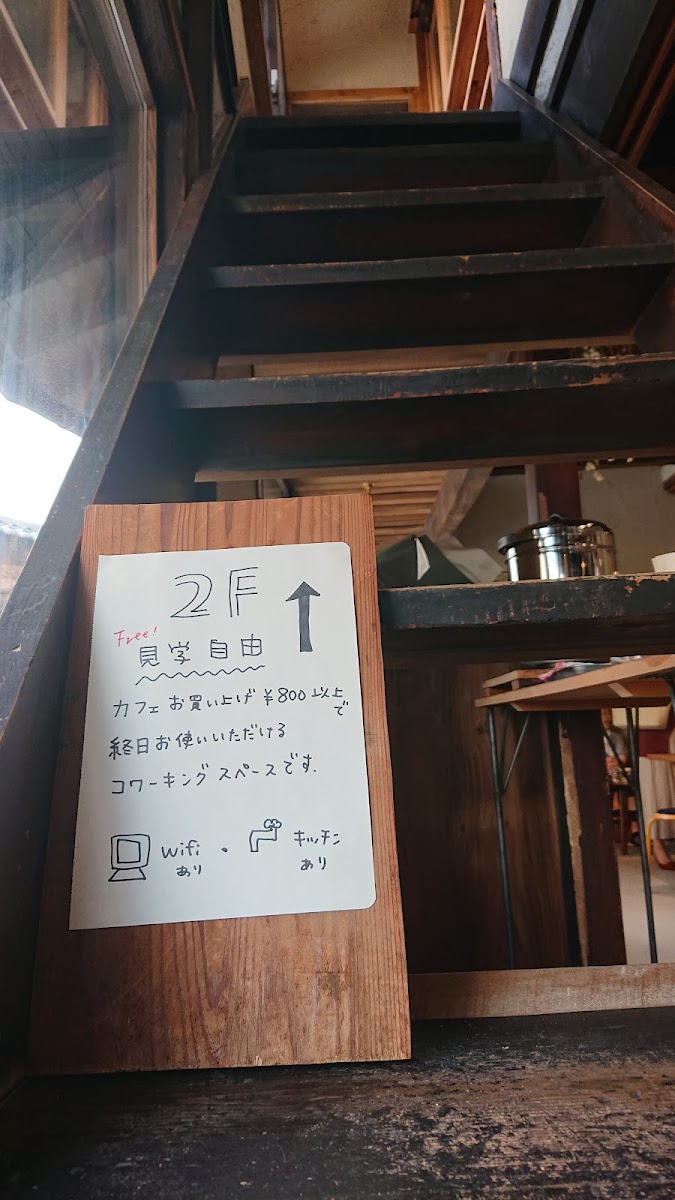 2F
Free!
見学自由
カフェお買い上げ ¥800以上で
終日お使いいただける
コワーキングスペースです.
wifi あり ・ キッチン あり